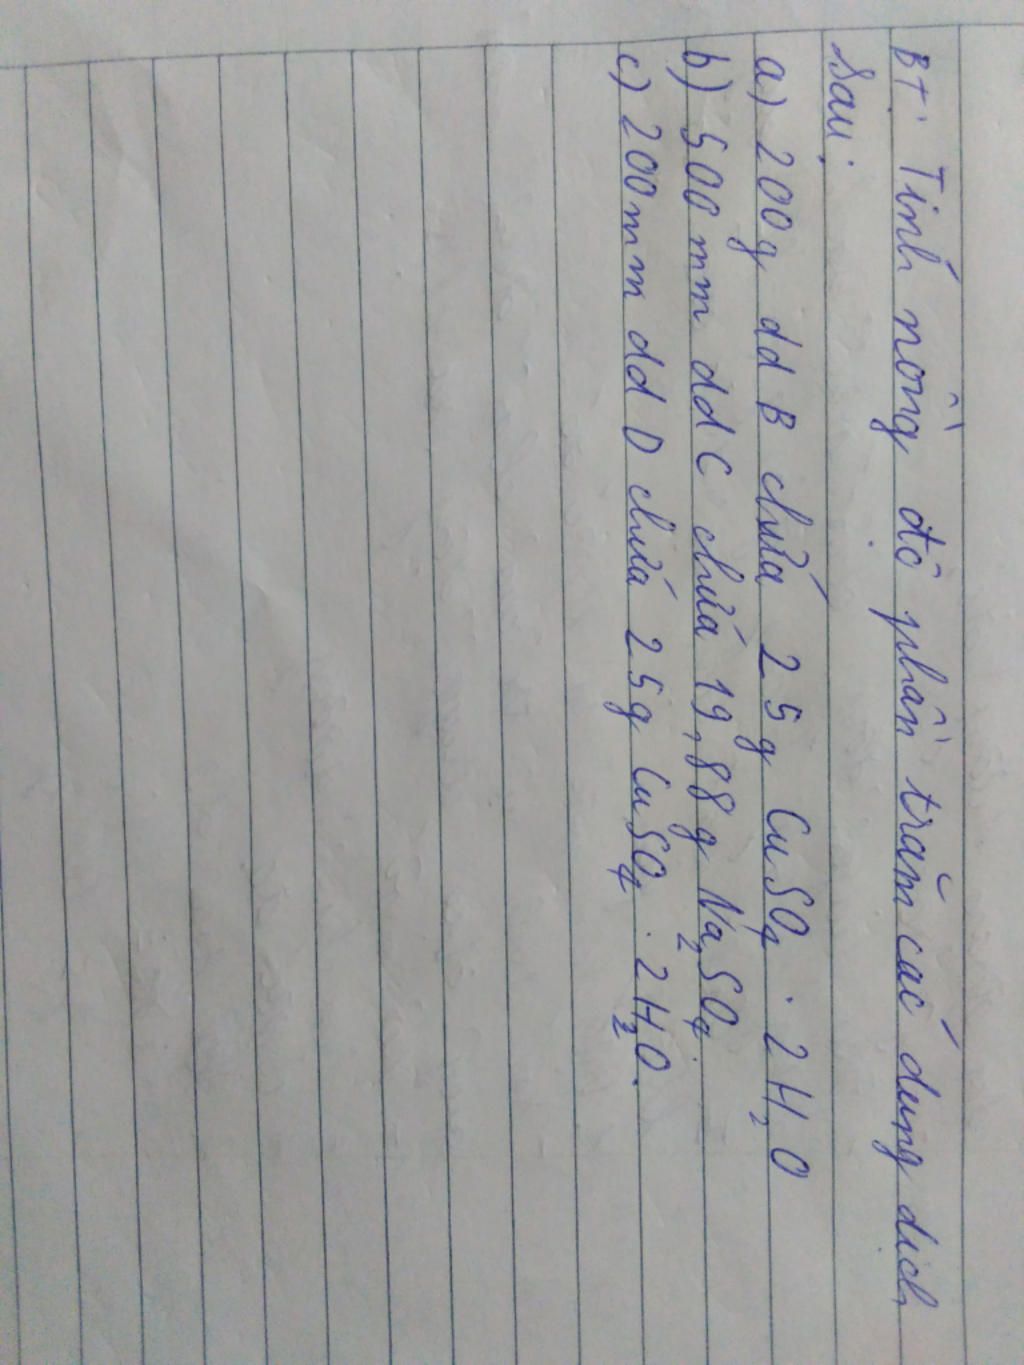 BT: Tính nồng độ phần trăm các dung dịch
sau:
a) 200g dd B chứa 25g CuSO4 . 2H2O
b) 500mm dd C chứa 19,88g Na2SO4.
c) 200mm dd D chứa 25g CuSO4 . 2H2O.